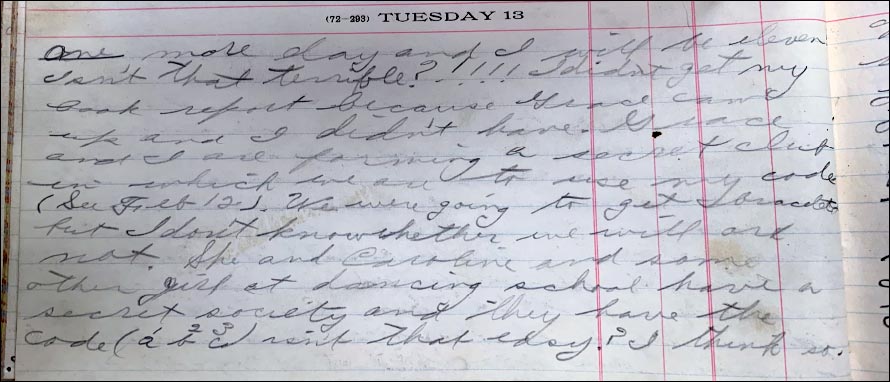 (72-293) TUESDAY 13
One more day and I will be eleven
Isn't that terrible?!!!! I didn't get my
book report because Grace came
up and I didn't have. Grace
and I are forming a secret club
in which we are to use my code
(See Feb 12). We were going to get bracelets
but I don't know whether we will or
not. She and Caroline and some
other girl at dancing school have a
secret society and they have the
code (a b² c³) isn't that easy? I think so.